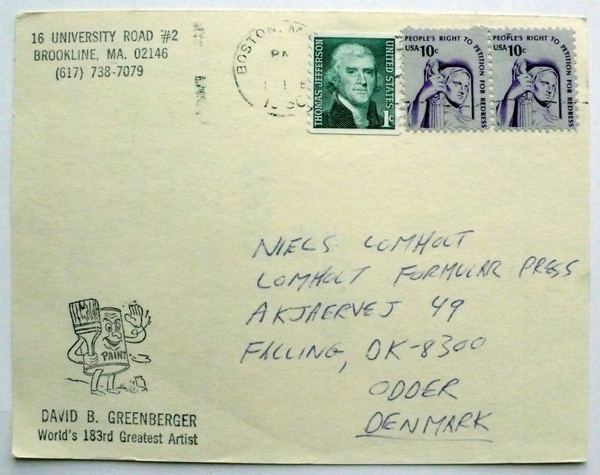 16 UNIVERSITY ROAD #2
BROOKLINE, MA. 02146
(617) 738-7079
BOSTON, M
PM
THOMAS JEFFERSON
UNITED STATES
1c
PEOPLE'S RIGHT TO PETITION FOR REDRESS
USA 10c
PEOPLE'S RIGHT TO PETITION FOR REDRESS
USA 10c
NIELS LOMHOLT
LOMHOLT FORMULAR PRESS
AKJAERVEJ 49
FALLING, DK-8300
ODDER
DENMARK
PAINT
DAVID B. GREENBERGER
World's 183rd Greatest Artist